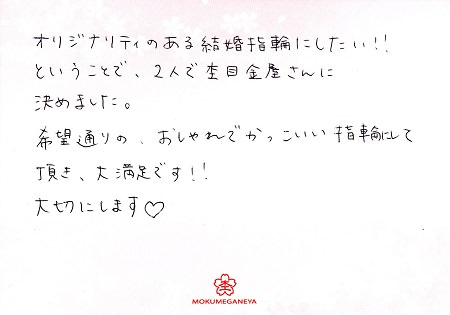 オリジナリティのある結婚指輪にしたい!!
ということで、2人で杢目金屋さんに
決めました。
希望通りの、おしゃれでかっこいい指輪にして
頂き、大満足です!!
大切にします♡
杢
MOKUMEGANEYA